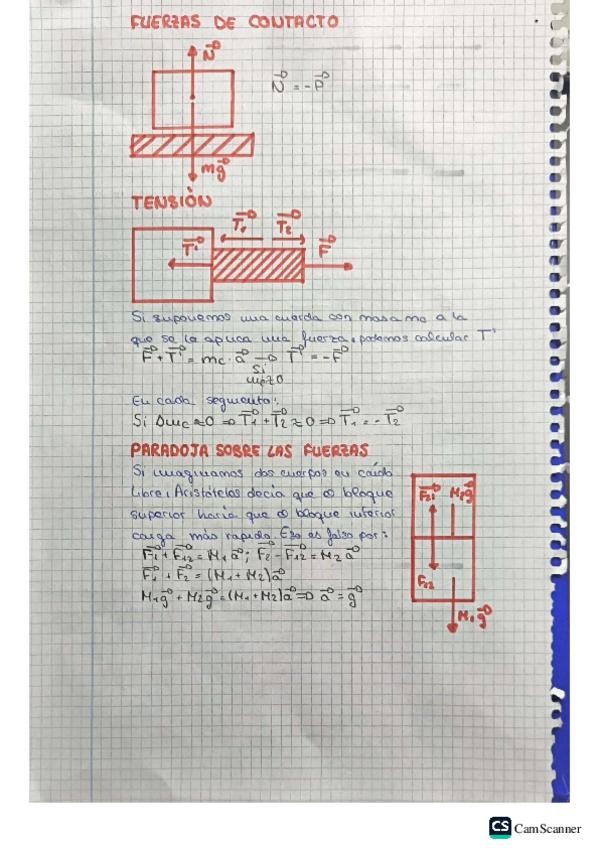 FUERZAS DE CONTACTO
N
N = -P
mg
TENSIÓN
T₁ T₂
T' F
Si suponemos una cuerda con masa mc a la
que se le aplica una fuerza, podemos calcular T'
F + T' = mc · a → T' = -F
Si
mc≈0
En cada segmento:
Si Δmc ≈ 0 ⇒ T₁ + T₂ ≈ 0 ⇒ T₁ = -T₂
PARADOJA SOBRE LAS FUERZAS
Si imaginamos dos cuerpos en caída
libre, Aristóteles decía que el bloque
superior haría que el bloque inferior
caiga más rapido. Eso es falso por:
F₁ + F₁₂ = M₁a ; F₂ - F₁₂ = M₂a
F₁ + F₂ = (M₁ + M₂)a
M₁g + M₂g = (M₁ + M₂)a ⇒ a = g
F₂₁ M₂g
F₁₂
M₁g
CS CamScanner